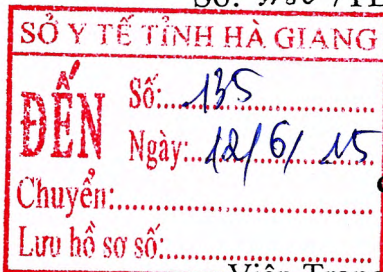 Số:
SỞ Y TẾ TỈNH HÀ GIANG
ĐẾN
Số:.....135
Ngày:...12/6/15
Chuyển:
Lưu hồ sơ số:
Viện Tran